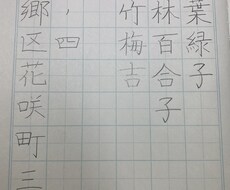 葉緑子
林百合子
竹梅吉
、四
郷区花咲町三